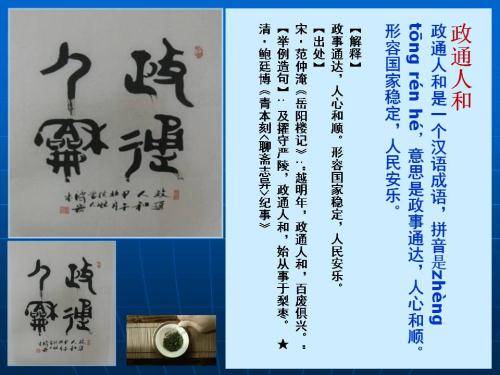 政通人和
政通人和是一个汉语成语，拼音是zhèng
tōng rén hé，意思是政事通达，人心和顺。
形容国家稳定，人民安乐。
【解释】
政事通达，人心和顺。形容国家稳定，人民安乐。
【出处】
宋·范仲淹《岳阳楼记》：“越明年，政通人和，百废俱兴。”
【举例造句】：及擢守严陵，政通人和，始从事于梨枣。 ★
清·鲍廷博《青本刻<聊斋志异>纪事》
政通
人和
政通
人和
政通
人和